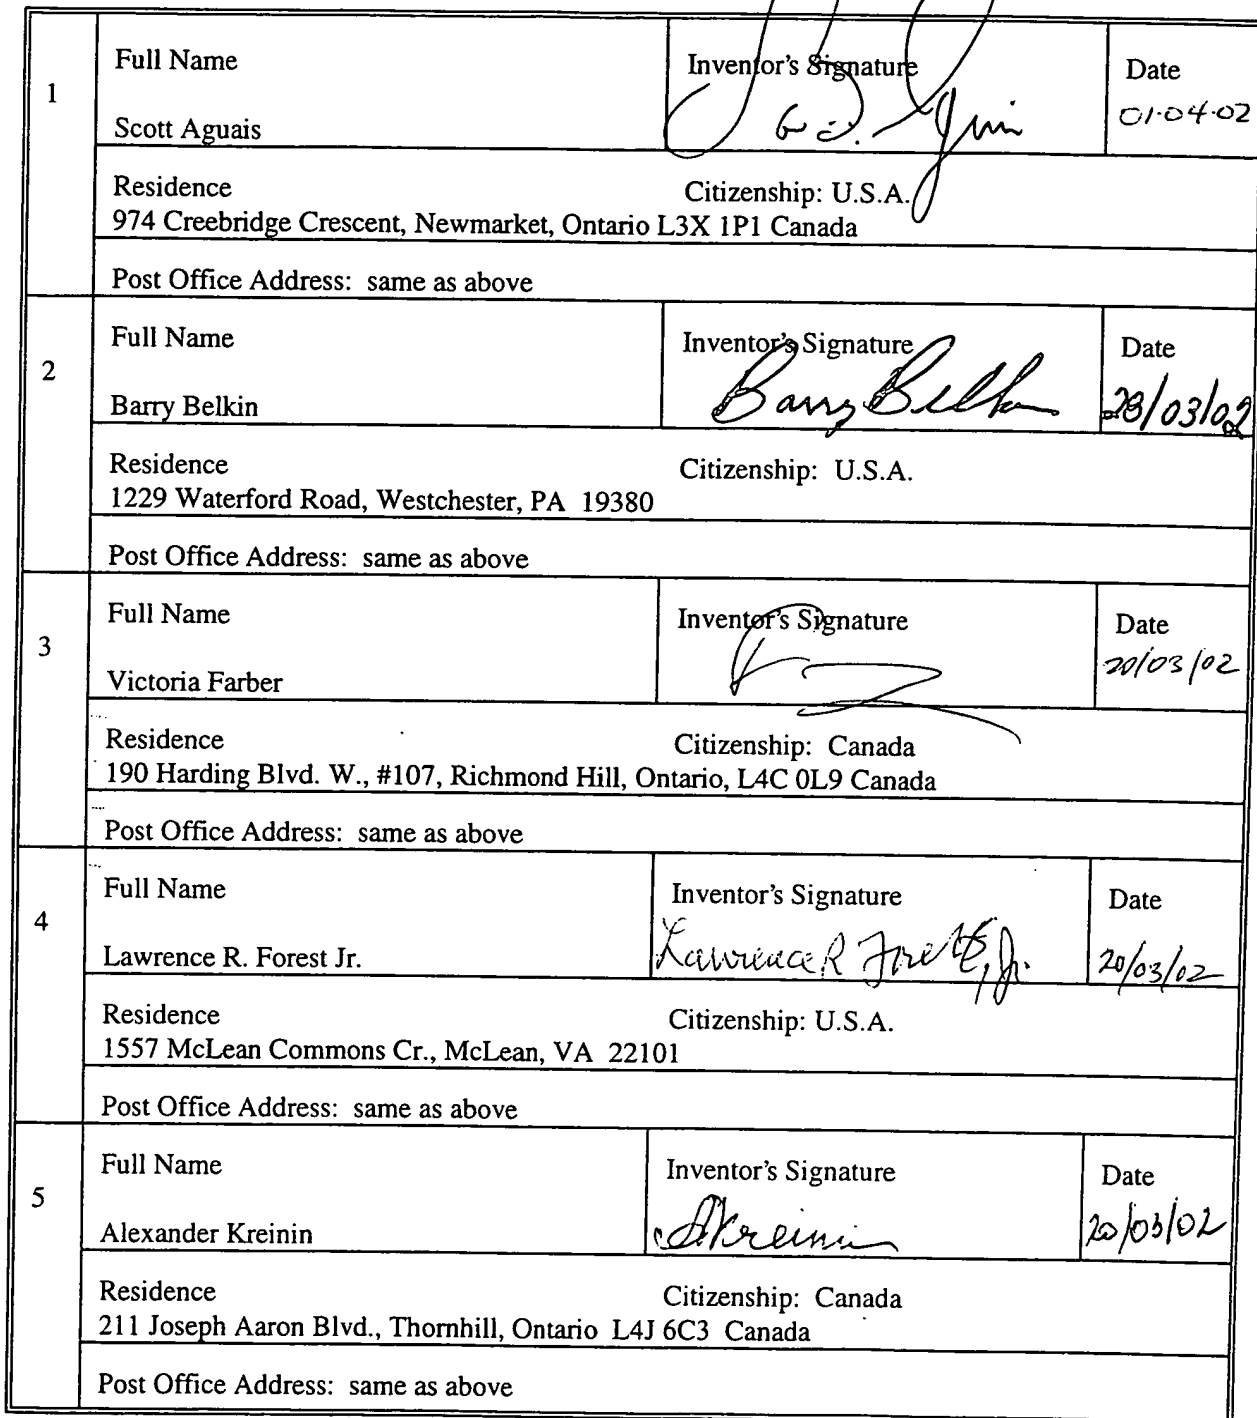 1
Full Name
Inventor's Signature
Date
Scott Aguais
01·04·02
Residence
Citizenship: U.S.A.
974 Creebridge Crescent, Newmarket, Ontario L3X 1P1 Canada
Post Office Address: same as above
2
Full Name
Inventor's Signature
Date
Barry Belkin
Barry Belkin
28/03/02
Residence
Citizenship: U.S.A.
1229 Waterford Road, Westchester, PA 19380
Post Office Address: same as above
3
Full Name
Inventor's Signature
Date
Victoria Farber
20/03/02
Residence
Citizenship: Canada
190 Harding Blvd. W., #107, Richmond Hill, Ontario, L4C 0L9 Canada
Post Office Address: same as above
4
Full Name
Inventor's Signature
Date
Lawrence R. Forest Jr.
Lawrence R Forest, Jr.
20/03/02
Residence
Citizenship: U.S.A.
1557 McLean Commons Cr., McLean, VA 22101
Post Office Address: same as above
5
Full Name
Inventor's Signature
Date
Alexander Kreinin
AKreinin
20/03/02
Residence
Citizenship: Canada
211 Joseph Aaron Blvd., Thornhill, Ontario L4J 6C3 Canada
Post Office Address: same as above